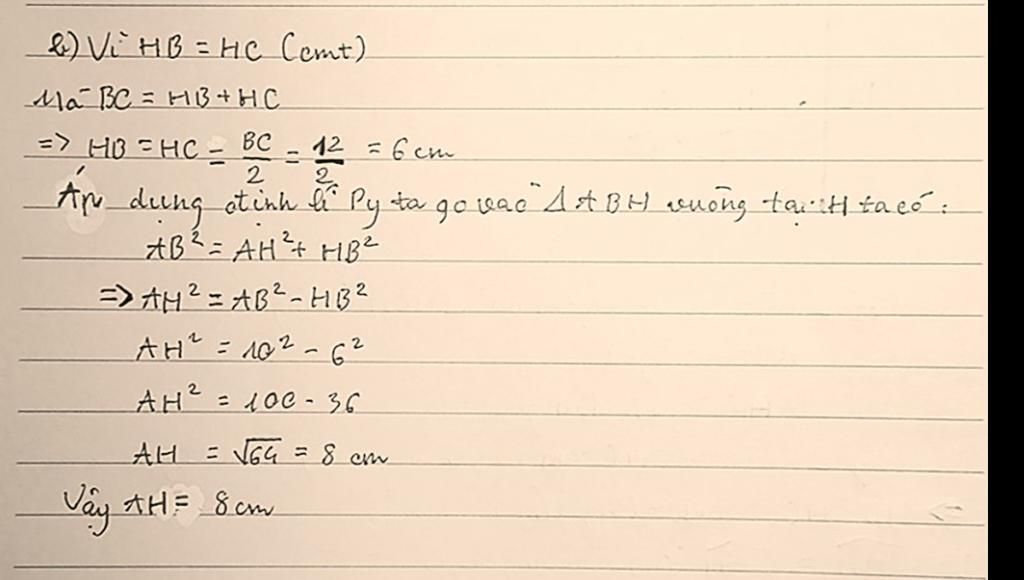 b) Vì HB = HC (cmt)
Mà BC = HB + HC
=> HB = HC = BC/2 = 12/2 = 6 cm
Áp dụng định lí Py ta go vào Δ ABH vuông tại H ta có:
AB² = AH² + HB²
=> AH² = AB² - HB²
AH² = 10² - 6²
AH² = 100 - 36
AH = √64 = 8 cm
Vậy AH = 8 cm